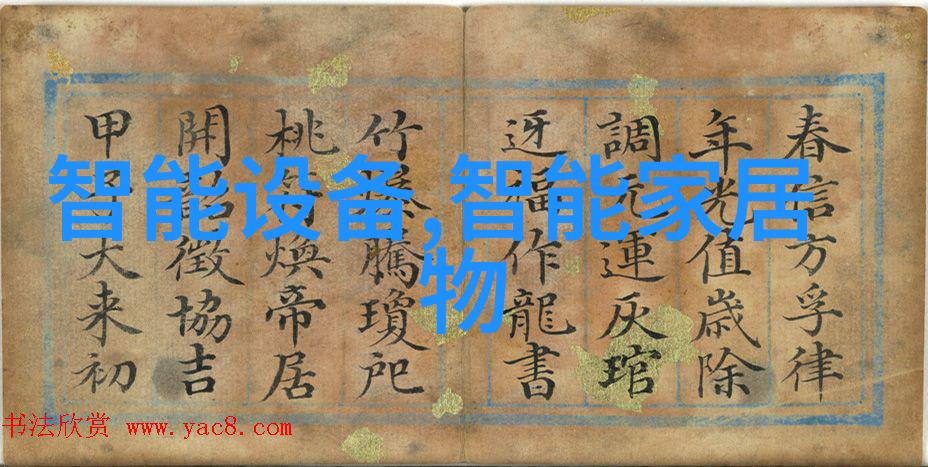 智能设备,智能家居
物
春信方孚律
年光值歲除
調元連灰琯
迓福作龍書
竹騰瓊
桃符煥帝居
開韶徵協吉
甲子大来初
书法欣赏 www.yac8.com